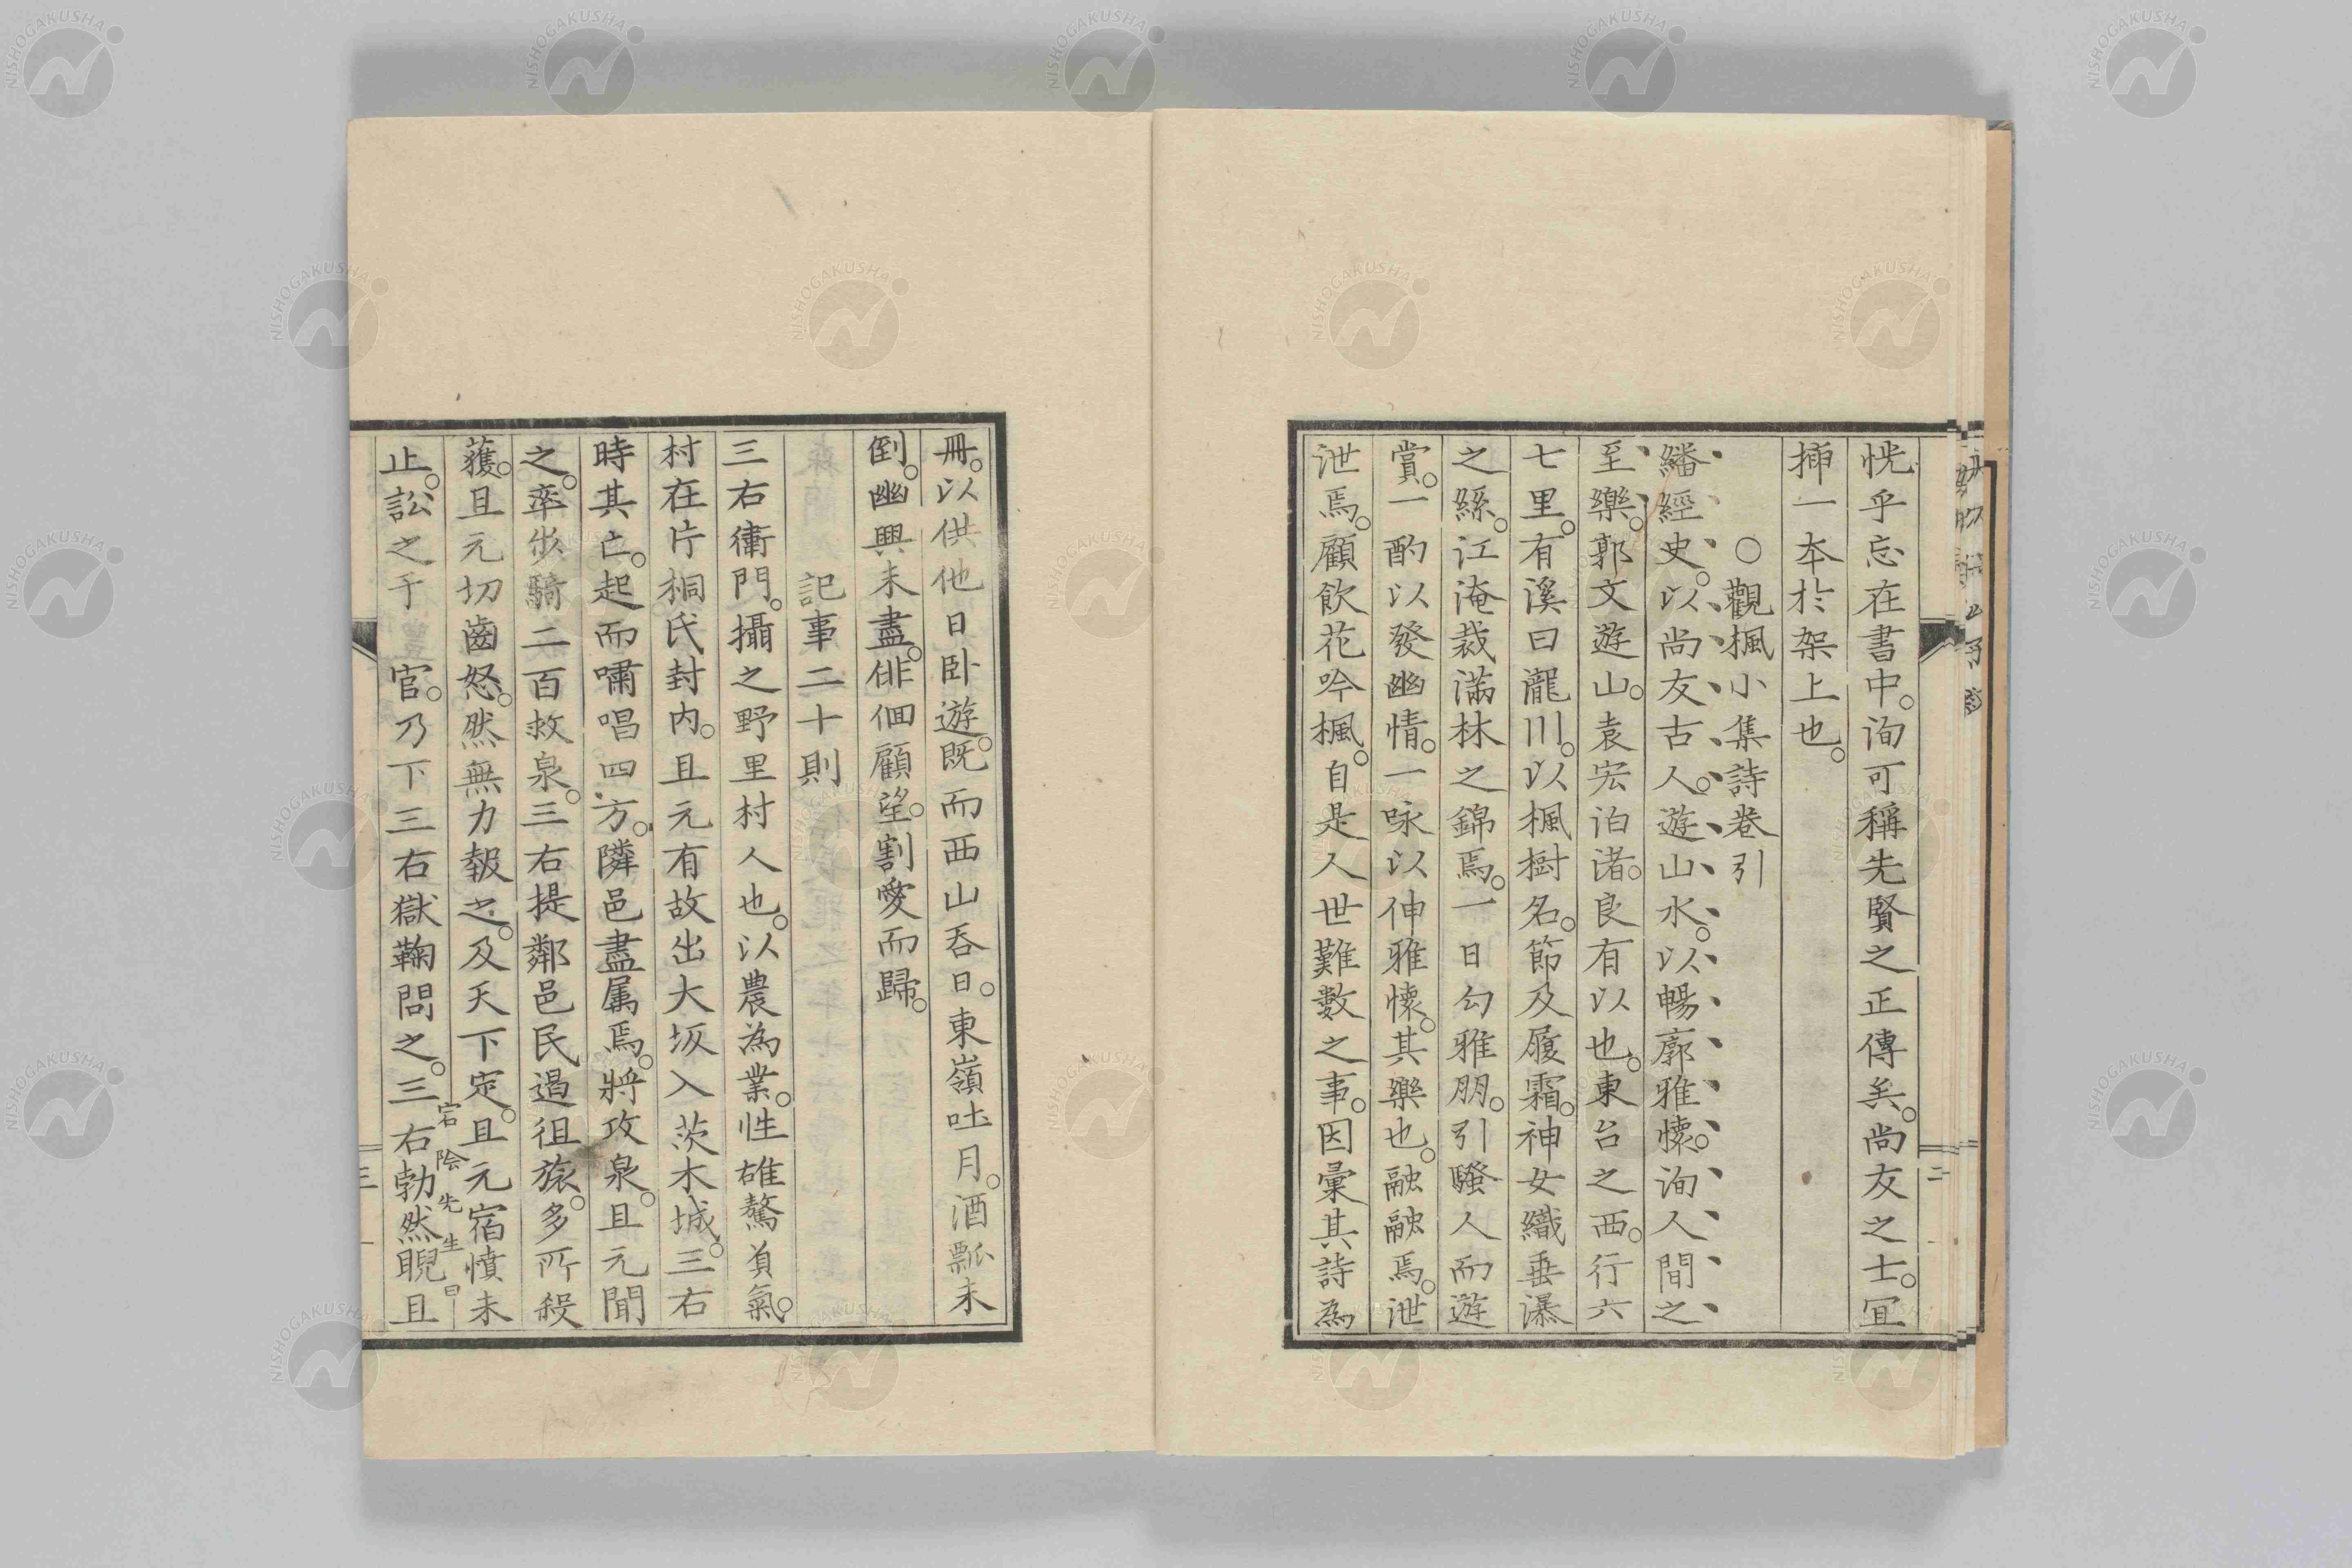 恍乎忘在書中。洵可稱先賢之正傳矣。尚友之士。宜
挿一本於架上也。
○觀楓小集詩巻引
繙經史。以尚友古人。遊山水。以暢廓雅懷。洵人間之
至樂。郭文遊山。袁宏泊渚。良有以也。東台之西。行六
七里。有溪曰瀧川。以楓樹名。節及履霜。神女織垂瀑
之絲。江淹裁滿林之錦焉。一日勾雅朋。引騷人而遊
賞。一酌以發幽情。一咏以伸雅懷。其樂也。融融焉。泄
泄焉。顧飲花吟楓。自是人世難數之事。因彙其詩為
二
冊。以供他日卧遊。既而西山吞日。東嶺吐月。酒瓢未
倒。幽興未盡。俳佪顧望。割愛而歸。
記事二十則
三右衛門。攝之野里村人也。以農為業。性雄驁負氣。
村在片桐氏封内。且元有故出大坂入茨木城。三右
時其亡。起而嘯唱四方。隣邑盡属焉。將攻泉。且元聞
之。率歩騎二百救泉。三右提鄰邑民遏徂旅。多所殺
獲。且元切齒怒。然無力報之。及天下定。且元宿憤未
宕陰先生曰
止。訟之于官。乃下三右獄鞠問之。三右勃然睨且
三
NISHOGAKUSHA